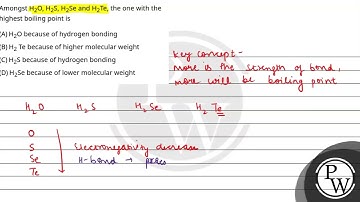 Amongst H₂O, H₂S, H₂Se and H₂Te, the one with the
highest boiling point is
(A) H₂O because of hydrogen bonding
(B) H₂ Te because of higher molecular weight
(C) H₂S because of hydrogen bonding
(D) H₂Se because of lower molecular weight
Key concept -
more is the strength of bond,
more will be boiling point
H₂O H₂S H₂Se H₂Te
O
S
Se
Te
Electronegativity decrease
H-bond → pres
P
W